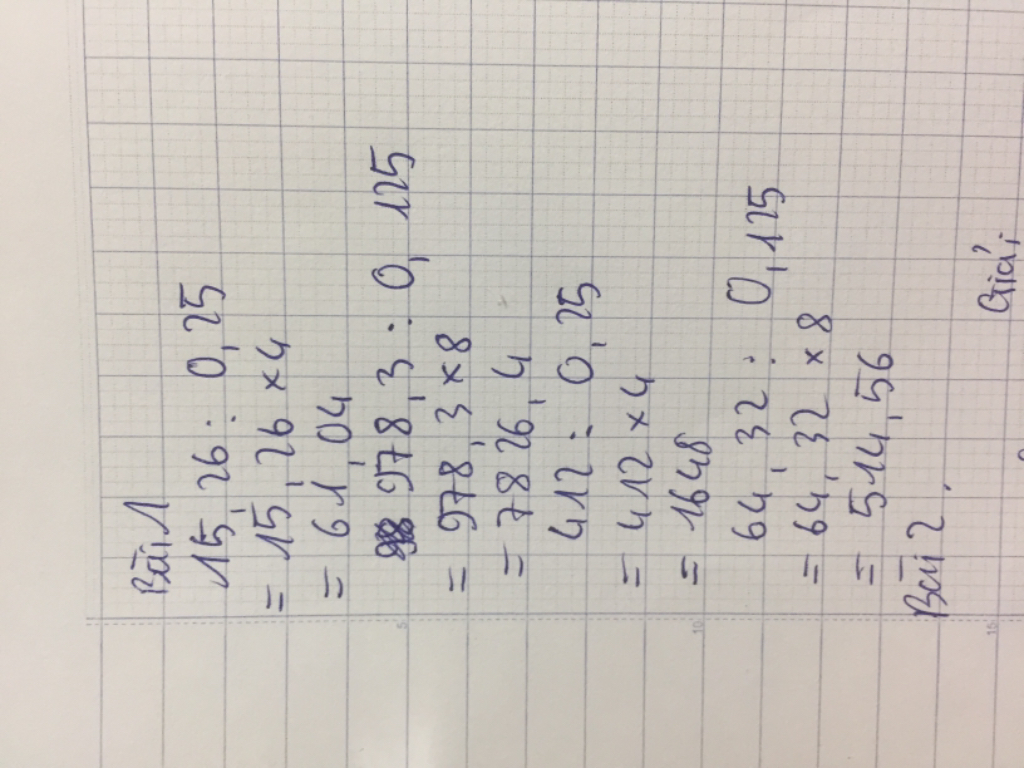 Bài 1
15,26 : 0,25
= 15,26 × 4
= 61,04
978,3 : 0,125
= 978,3 × 8
= 7826,4
412 : 0,25
= 412 × 4
= 1648
64,32 : 0,125
= 64,32 × 8
= 514,56
Bài 2.
Giải
5
10
15